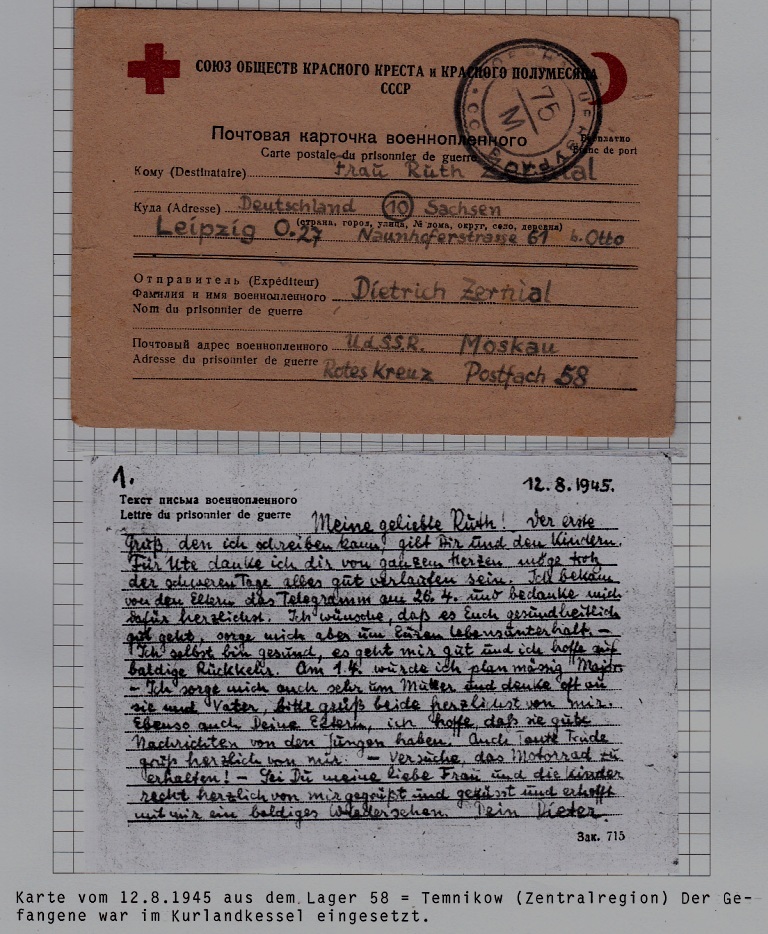 СОЮЗ ОБЩЕСТВ КРАСНОГО КРЕСТА и КРАСНОГО ПОЛУМЕСЯЦА
СССР
75
М
Почтовая карточка военнопленного
Carte postale du prisonnier de guerre
Бесплатно
Franc de port
Кому (Destinataire) Frau Ruth Zernial
Куда (Adresse) Deutschland 10 Sachsen
(страна, город, улица, № дома, округ, село, деревня)
Leipzig O.27 Naunhoferstrasse 61 b. Otto
Отправитель (Expéditeur)
Фамилия и имя военнопленного Dietrich Zernial
Nom du prisonnier de guerre
Почтовый адрес военнопленного U.d.S.S.R. Moskau
Adresse du prisonnier de guerre Rotes Kreuz Postfach 58
1. 12.8.1945.
Текст письма военнопленного
Lettre du prisonnier de guerre Meine geliebte Ruth! Der erste
Gruß, den ich schreiben kann, gilt Dir und den Kindern.
Für Ute danke ich dir von ganzem Herzen möge trotz
der schweren Tage alles gut verlaufen sein. Ich bekam
von den Eltern das Telegramm am 26.4. und bedanke mich
dafür herzlichst. Ich wünsche, daß es Euch gesundheitlich
gut geht, sorge mich aber um Euren Lebensunterhalt –
Ich selbst bin gesund, es geht mir gut und ich hoffe auf
baldige Rückkehr. Am 1.4. wurde ich planmässig Major
– Ich sorge mich auch sehr um Mutter und denke oft an
sie und Vater, bitte grüß beide herzlichst von mir.
Ebenso auch Deine Eltern, ich hoffe, daß sie gute
Nachrichten von den Jungen haben. Auch Tante
grüß herzlich von mir. – Versuche, das Motorrad zu
erhalten! – Sei Du meine liebe Frau und die Kinder
recht herzlich von mir gegrüßt und geküsst und erhofft
mit mir ein baldiges Wiedersehen. Dein Dieter.
Зак. 715
Karte vom 12.8.1945 aus dem Lager 58 = Temnikow (Zentralregion) Der Ge-
fangene war im Kurlandkessel eingesetzt.